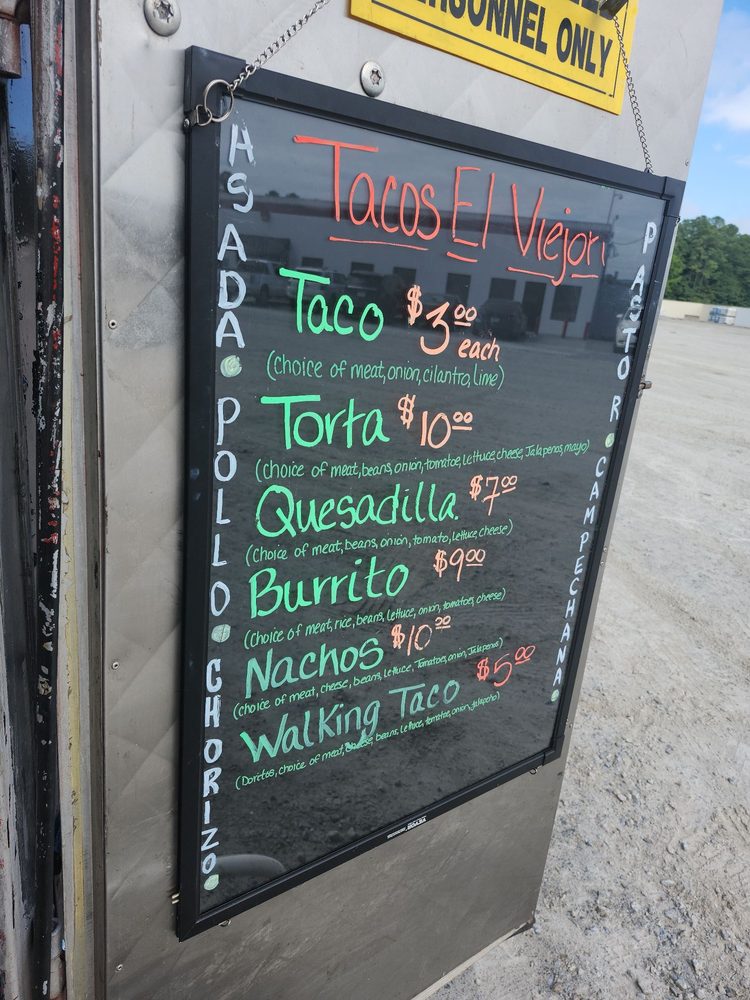 PERSONNEL ONLY
Tacos El Viejon
Taco $3.00
each
(choice of meat, onion, cilantro, lime)
Torta $10.00
(choice of meat, beans, onion, tomatoe, lettuce, cheese, Jalapenas, mayo)
Quesadilla $7.00
(choice of meat, beans, onion, tomato, lettuce, cheese)
Burrito $9.00
(choice of meat, rice, beans, lettuce, onion, tomatoes, cheese)
Nachos $10.00
(choice of meat, cheese, beans, lettuce, Tomatoes, onion, Jalapenos)
Walking Taco $5.00
(Doritos, choice of meat, cheese, beans, lettuce, tomatoe, onion, jalapeño)
ASADA • POLLO • CHORIZO •
PASTOR • CAMPECHANA •